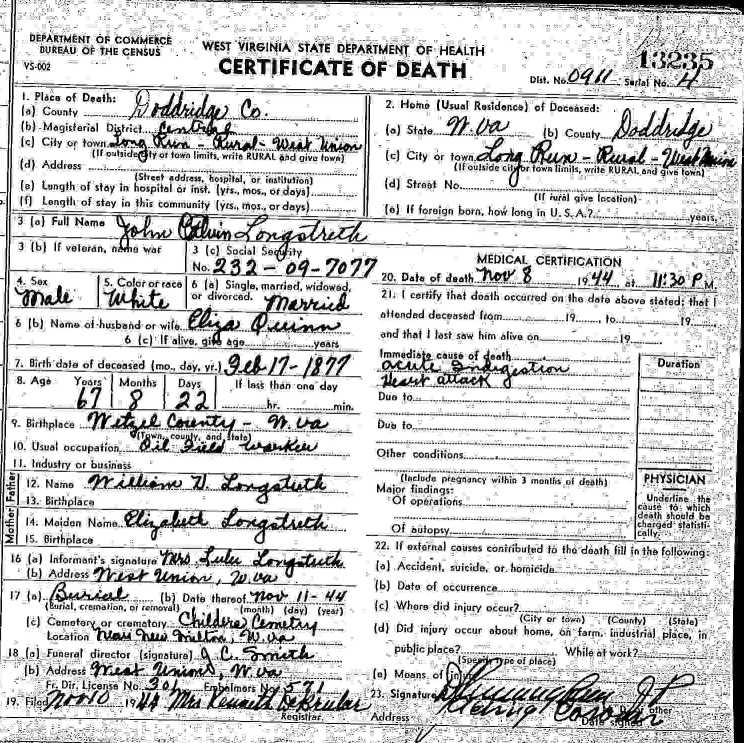 DEPARTMENT OF COMMERCE
BUREAU OF THE CENSUS
VS-002
WEST VIRGINIA STATE DEPARTMENT OF HEALTH
CERTIFICATE OF DEATH
13235
Dist. No. 0911 Serial No. H
1. Place of Death:
(a) County Doddridge Co.
(b) Magisterial District Central
(c) City or town Long Run - Rural - West Union
(If outside city or town limits, write RURAL and give town)
(d) Address
(Street address, hospital, or institution)
(e) Length of stay in hospital or inst. (yrs., mos., or days)
(f) Length of stay in this community (yrs., mos., or days)
2. Home (Usual Residence) of Deceased:
(a) State W.va (b) County Doddridge
(c) City or town Long Run - Rural - West Union
(If outside city or town limits, write RURAL and give town)
(d) Street No.
(If rural give location)
(e) If foreign born, how long in U.S.A.? years.
3 (a) Full Name John Calvin Longstreth
3 (b) If veteran, name war
3 (c) Social Security
No. 232-09-7077
4. Sex
Male
5. Color or race
White
6 (a) Single, married, widowed,
or divorced. Married
6 (b) Name of husband or wife Eliza Quinn
6 (c) If alive, give age years
7. Birth date of deceased (mo., day, yr.) Feb-17-1877
8. Age Years Months Days If less than one day
67 8 22 hr. min.
9. Birthplace Wetzel County - W.va
(Town, county, and state)
10. Usual occupation Oil Field Worker
11. Industry or business
Father
12. Name William V. Longstreth
13. Birthplace
Mother
14. Maiden Name Elizabeth Longstreth
15. Birthplace
16 (a) Informant's signature Mrs. Lulu Longstreth
(b) Address West Union, W.va
17 (a) Burial (b) Date thereof Nov 11-44
(Burial, cremation, or removal) (month) (day) (year)
(c) Cemetery or crematory Childers Cemetry
Location Near New Milton, W.va
18 (a) Funeral director (signature) J C. Smith
(b) Address West Union, W.va
Fr. Dir. License No. 301 Embalmers No. 571
19. Filed Nov 10 1944 Mrs Kenneth
Registrar.
MEDICAL CERTIFICATION
20. Date of death Nov 8 1944 at 11:30 P.M.
21. I certify that death occurred on the date above stated; that I
attended deceased from 19 to 19
and that I last saw him alive on 19
Immediate cause of death
acute Indigestion
Heart attack
Duration
Due to
Due to
Other conditions
(Include pregnancy within 3 months of death)
Major findings:
Of operations
Of autopsy
PHYSICIAN
Underline the
cause to which
death should be
charged statisti-
cally.
22. If external causes contributed to the death fill in the following:
(a) Accident, suicide, or homicide
(b) Date of occurrence
(c) Where did injury occur?
(City or town) (County) (State)
(d) Did injury occur about home, on farm, industrial place, in
public place? While at work?
(Specify type of place)
(e) Means of injury
23. Signature J P
other
Address Acting Coroner
Date signed